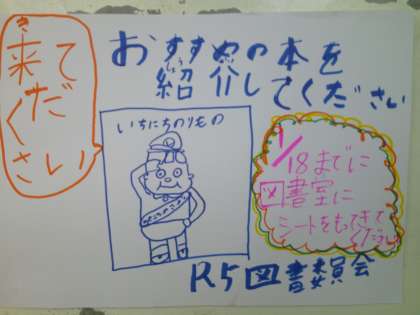 来て
くだ
さい
き
おすすめの本を
紹介してください
しょう
いちにちのりもの
1/18までに
図書室に
シートをもってきて
ください
R5図書委員会